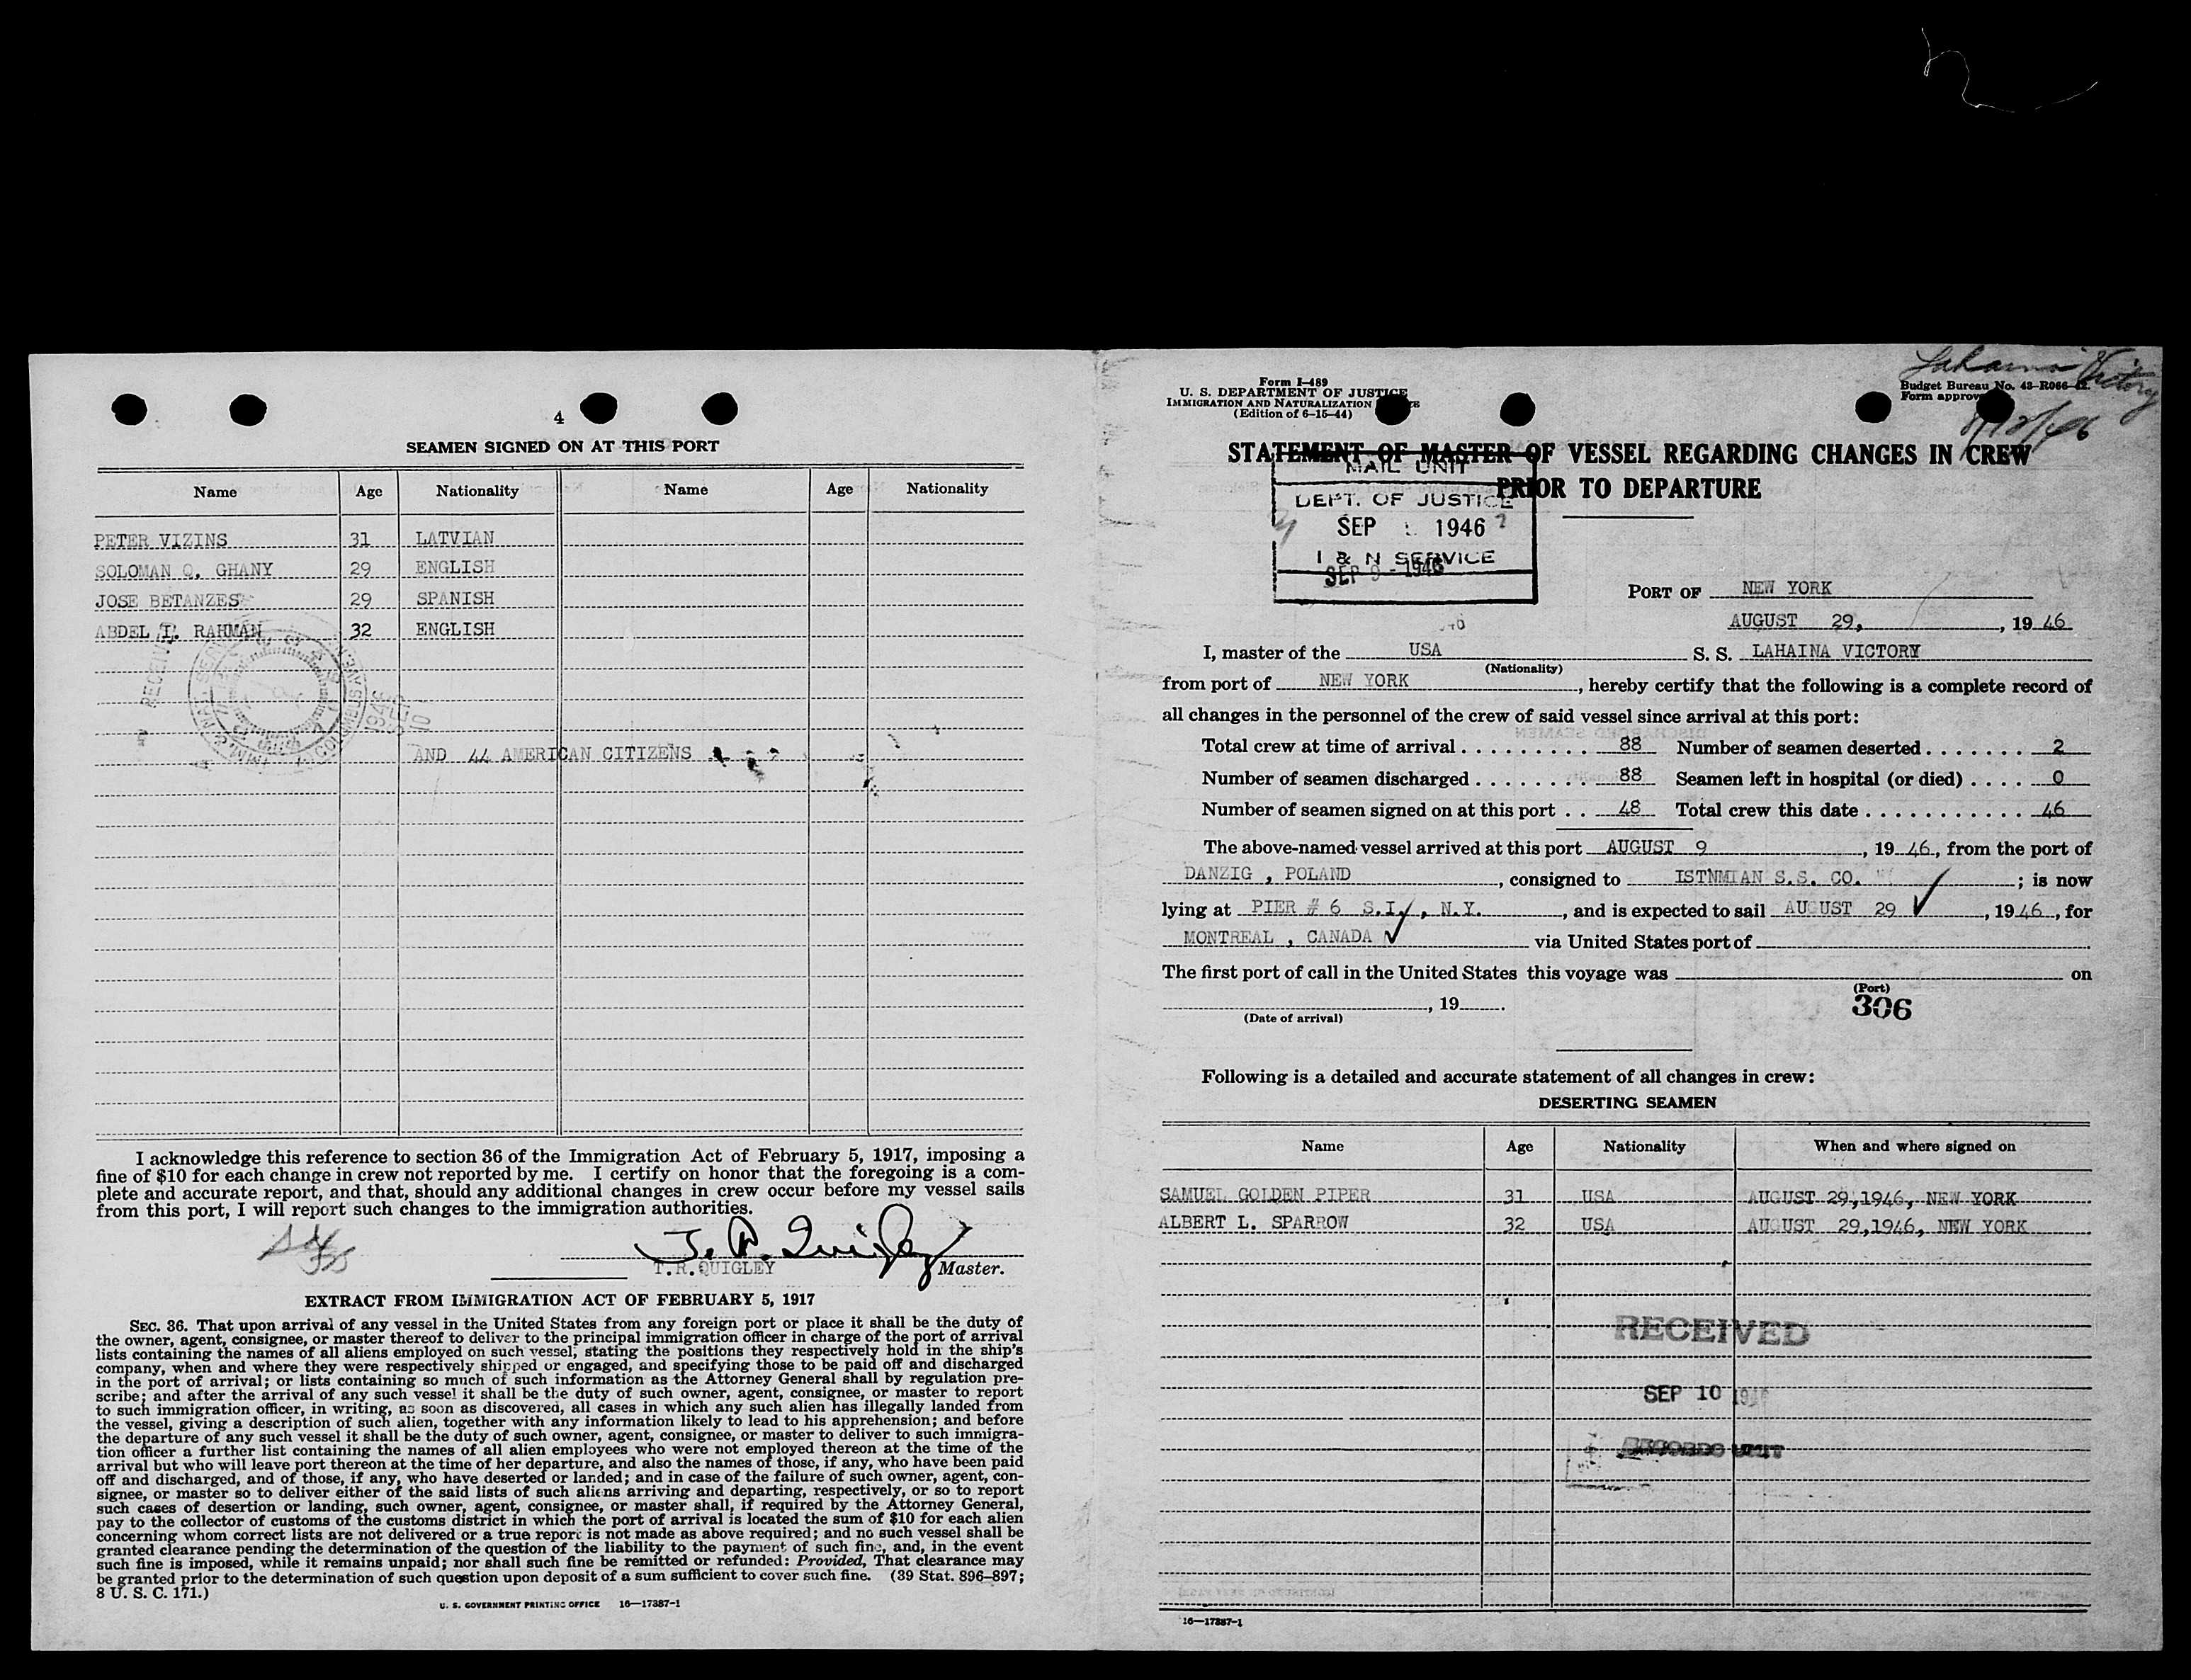 4
SEAMEN SIGNED ON AT THIS PORT
Name Age Nationality Name Age Nationality
PETER VIZINS 31 LATVIAN
SOLOMAN O. GHANY 29 ENGLISH
JOSE BETANZES 29 SPANISH
ABDEL I. RAHMAN 32 ENGLISH
AND 44 AMERICAN CITIZENS
I acknowledge this reference to section 36 of the Immigration Act of February 5, 1917, imposing a
fine of $10 for each change in crew not reported by me. I certify on honor that the foregoing is a com-
plete and accurate report, and that, should any additional changes in crew occur before my vessel sails
from this port, I will report such changes to the immigration authorities.
T. R. Quigley
T.R.QUIGLEY Master.
EXTRACT FROM IMMIGRATION ACT OF FEBRUARY 5, 1917
SEC. 36. That upon arrival of any vessel in the United States from any foreign port or place it shall be the duty of
the owner, agent, consignee, or master thereof to deliver to the principal immigration officer in charge of the port of arrival
lists containing the names of all aliens employed on such vessel, stating the positions they respectively hold in the ship's
company, when and where they were respectively shipped or engaged, and specifying those to be paid off and discharged
in the port of arrival; or lists containing so much of such information as the Attorney General shall by regulation pre-
scribe; and after the arrival of any such vessel it shall be the duty of such owner, agent, consignee, or master to report
to such immigration officer, in writing, as soon as discovered, all cases in which any such alien has illegally landed from
the vessel, giving a description of such alien, together with any information likely to lead to his apprehension; and before
the departure of any such vessel it shall be the duty of such owner, agent, consignee, or master to deliver to such immigra-
tion officer a further list containing the names of all alien employees who were not employed thereon at the time of the
arrival but who will leave port thereon at the time of her departure, and also the names of those, if any, who have been paid
off and discharged, and of those, if any, who have deserted or landed; and in case of the failure of such owner, agent, con-
signee, or master so to deliver either of the said lists of such aliens arriving and departing, respectively, or so to report
such cases of desertion or landing, such owner, agent, consignee, or master shall, if required by the Attorney General,
pay to the collector of customs of the customs district in which the port of arrival is located the sum of $10 for each alien
concerning whom correct lists are not delivered or a true report is not made as above required; and no such vessel shall be
granted clearance pending the determination of the question of the liability to the payment of such fine, and, in the event
such fine is imposed, while it remains unpaid; nor shall such fine be remitted or refunded: Provided, That clearance may
be granted prior to the determination of such question upon deposit of a sum sufficient to cover such fine. (39 Stat. 896–897;
8 U. S. C. 171.)
U. S. GOVERNMENT PRINTING OFFICE 16—17387-1
Lahaina Victory
Form I-489
U. S. DEPARTMENT OF JUSTICE
IMMIGRATION AND NATURALIZATION
(Edition of 6-15-44)
Budget Bureau No. 43-R066
Form approv
STATEMENT OF MASTER OF VESSEL REGARDING CHANGES IN CREW
PRIOR TO DEPARTURE
MAIL UNIT
DEPT. OF JUSTICE
SEP 1946
I & N SERVICE
SEP 9 - 1946
PORT OF NEW YORK
AUGUST 29, , 19 46
I, master of the USA S. S. LAHAINA VICTORY
(Nationality)
from port of NEW YORK, hereby certify that the following is a complete record of
all changes in the personnel of the crew of said vessel since arrival at this port:
Total crew at time of arrival . . . . . . . . . 88 Number of seamen deserted . . . . . . . 2
Number of seamen discharged . . . . . . . . 88 Seamen left in hospital (or died) . . . . 0
Number of seamen signed on at this port . . 48 Total crew this date . . . . . . . . . . . 46
The above-named vessel arrived at this port AUGUST 9, 19 46, from the port of
DANZIG , POLAND, consigned to ISTNMIAN S.S. CO. ; is now
lying at PIER # 6 S.I., N.Y., and is expected to sail AUGUST 29, 19 46, for
MONTREAL , CANADA via United States port of
The first port of call in the United States this voyage was on
(Port)
, 19 .
(Date of arrival)
306
Following is a detailed and accurate statement of all changes in crew:
DESERTING SEAMEN
Name Age Nationality When and where signed on
SAMUEL GOLDEN PIPER 31 USA AUGUST 29,1946, NEW YORK
ALBERT L. SPARROW 32 USA AUGUST 29,1946, NEW YORK
RECEIVED
SEP 10 1946
RECORDS UNIT
16—17387-1